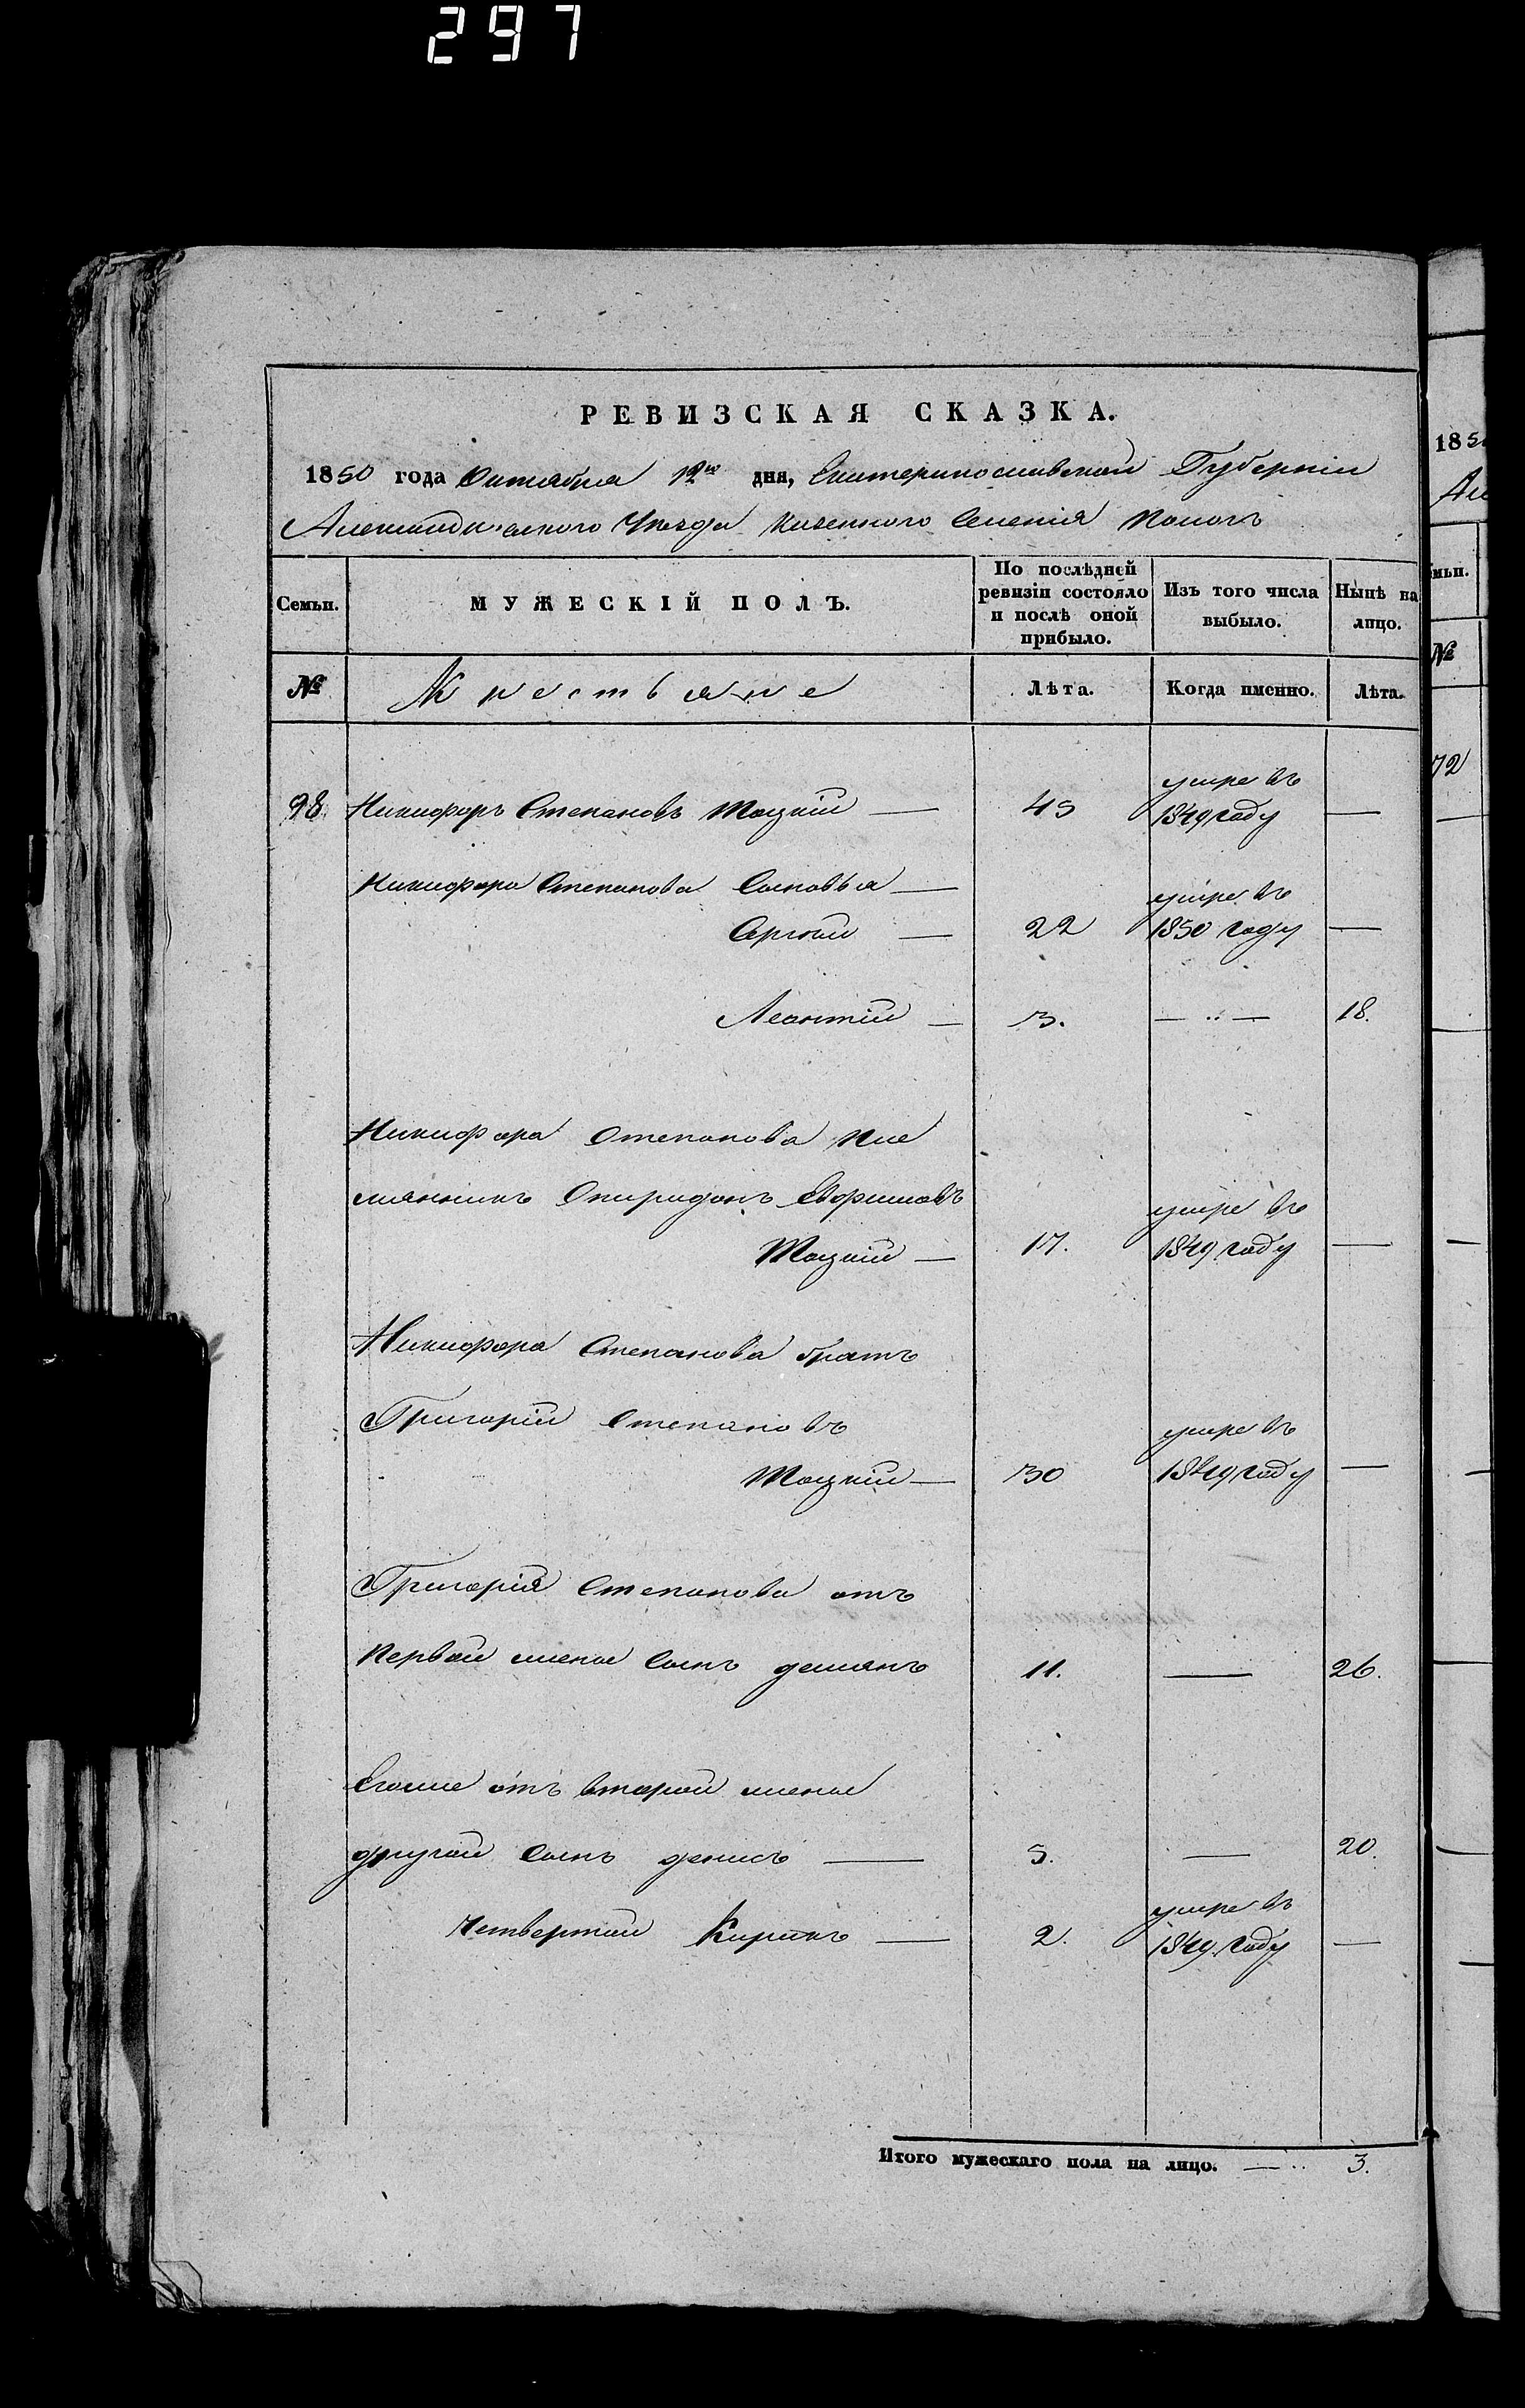 297
РЕВИЗСКАЯ СКАЗКА.
1850 года Октября 12го дня, Екатеринославской Губерніи
Александровского Уезда Казенного Селенія Пологъ
Семьи.
МУЖЕСКІЙ ПОЛЪ.
По послѣдней
ревизіи состояло
и послѣ оной
прибыло.
Изъ того числа
выбыло.
Нынѣ на
лицо.
№
Крестьяне
Лѣта.
Когда именно.
Лѣта.
98 Никифоръ Степановъ Моцкій — 45 умре въ 1849 году —
Никифора Степанова Сыновья —
Сергей — 22 умре въ 1850 году —
Леонтій — 3. — 18.
Никифора Степанова пле
мянникъ Спиридонъ Ефримовъ
Моцкій — 17. умре въ 1849 году —
Никифора Степанова братъ
Григорій Степановъ
Моцкій — 30 умре въ 1849 году —
Григорія Степанова отъ
первой жены сынъ демянъ 11. — 26.
Егоже отъ второй жены
другой сынъ денисъ — 5. — 20.
Четвертый — 2. умре въ 1849 году —
Итого мужескаго пола на лицо. — 3.
185
Ал
мьи.
№
72